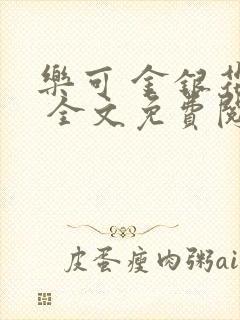 樂可 金銀花
全文免費閱
皮蛋瘦肉粥ai